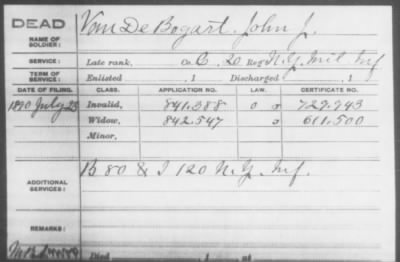 DEAD
NAME OF SOLDIER:
Van De Bogart, John J.
SERVICE:
Late rank, Co. C, 20 Reg't N.Y. Mil Inf
TERM OF SERVICE:
Enlisted , 1 Discharged , 1
DATE OF FILING. CLASS. APPLICATION NO. LAW. CERTIFICATE NO.
1890 July 23 Invalid, 841.388 729.943
Widow, 842.547 611.500
Minor,
ADDITIONAL SERVICES:
B 80 & I 120 N.Y. Inf.
REMARKS:
Died , 1 , at